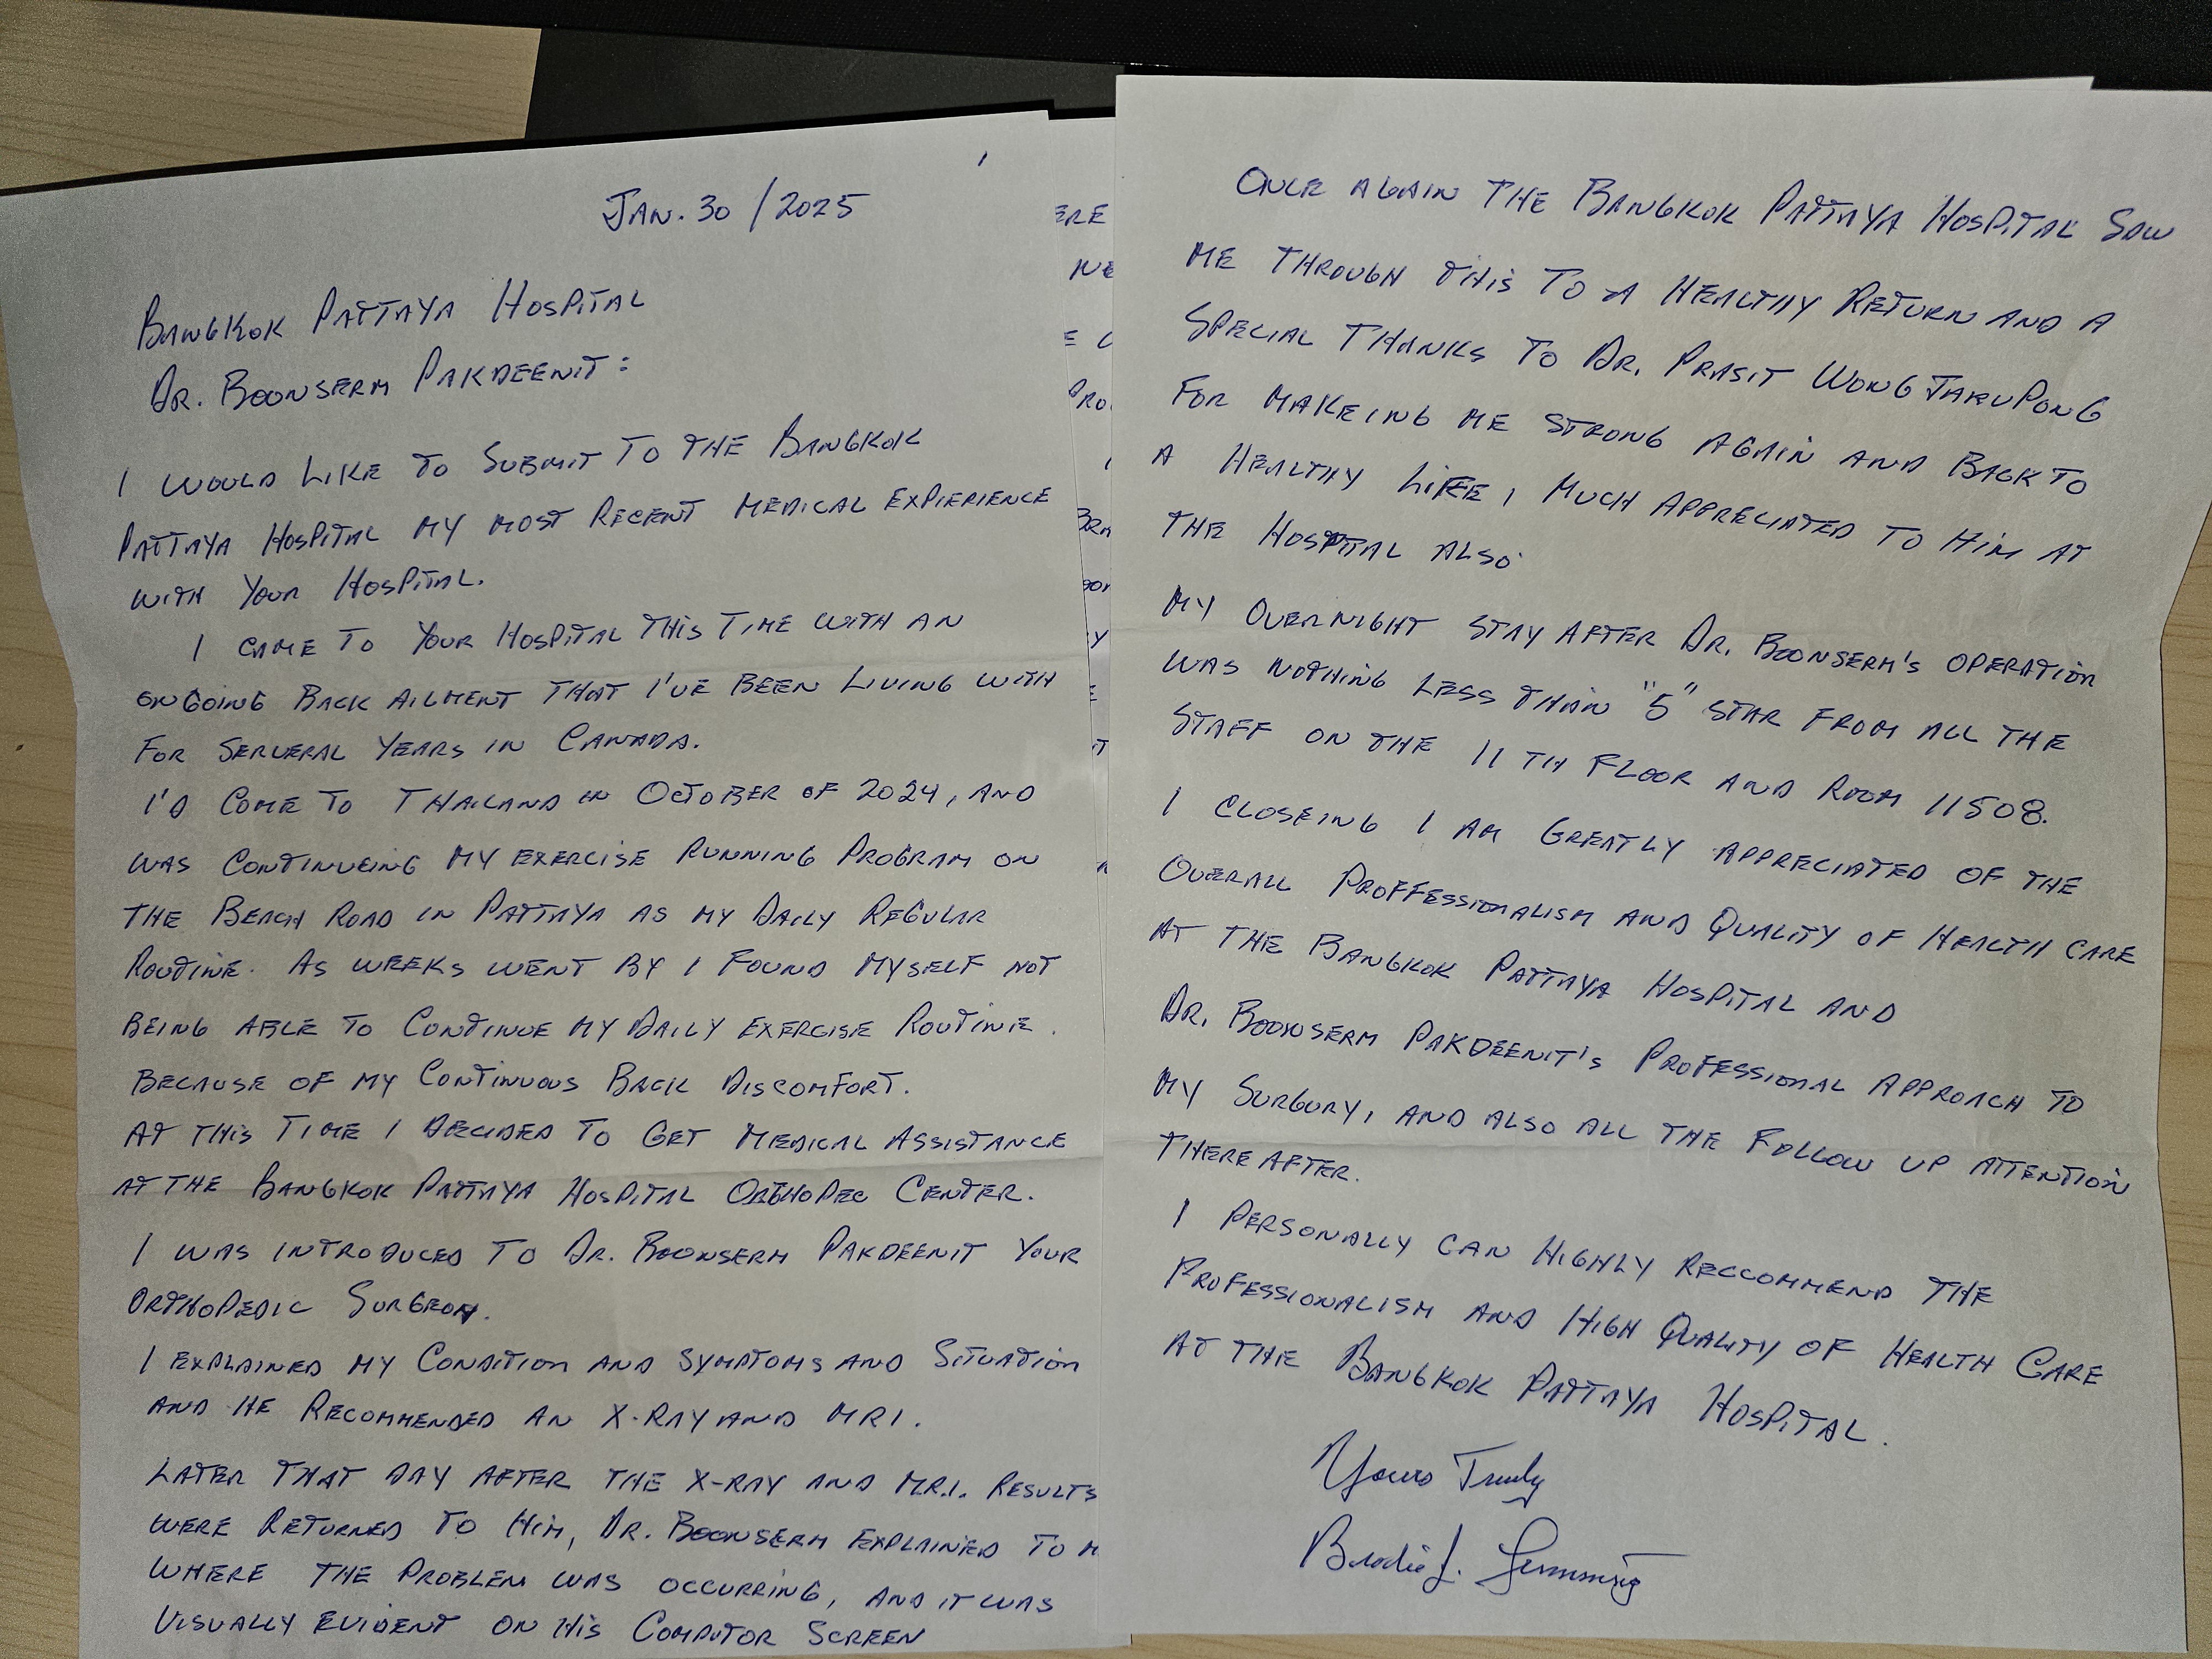 JAN. 30 / 2025
BANGKOK PATTAYA HOSPITAL
DR. BOONSERM PAKDEENIT:
I WOULD LIKE TO SUBMIT TO THE BANGKOK
PATTAYA HOSPITAL MY MOST RECENT MEDICAL EXPIERIENCE
WITH YOUR HOSPITAL.
I CAME TO YOUR HOSPITAL THIS TIME WITH AN
ONGOING BACK AILMENT THAT I'VE BEEN LIVING WITH
FOR SERVERAL YEARS IN CANADA.
I'D COME TO THAILAND IN OCTOBER OF 2024, AND
WAS CONTINUEING MY EXERCISE RUNNING PROGRAM ON
THE BEACH ROAD IN PATTAYA AS MY DAILY REGULAR
ROUTINE. AS WEEKS WENT BY I FOUND MYSELF NOT
BEING ABLE TO CONTINUE MY DAILY EXERCISE ROUTINE.
BECAUSE OF MY CONTINUOUS BACK DISCOMFORT.
AT THIS TIME I DECIDED TO GET MEDICAL ASSISTANCE
AT THE BANGKOK PATTAYA HOSPITAL CENTER.
I WAS INTRODUCED TO DR. BOONSERM PAKDEENIT YOUR
ORTHOPEDIC SURGEON.
I EXPLAINED MY CONDITION AND SYMPTOMS AND SITUATION
AND HE RECOMMENDED AN X-RAY AND MRI.
LATER THAT DAY AFTER THE X-RAY AND M.R.I. RESULTS
WERE RETURNED TO HIM, DR. BOONSERM EXPLAINED TO
WHERE THE PROBLEM WAS OCCURRING, AND IT WAS
VISUALLY EVIDENT ON HIS COMPUTOR SCREEN
ONCE AGAIN THE BANGKOK PATTAYA HOSPITAL SAW
ME THROUGH THIS TO A HEALTHY RETURN AND A
SPECIAL THANKS TO DR. PRASIT WONGTARUPONG
FOR MAKEING ME STRONG AGAIN AND BACK TO
A HEALTHY LIFE, MUCH APPRECIATED TO HIM AT
THE HOSPITAL ALSO.
MY OVERNIGHT STAY AFTER DR. BOONSERM'S OPERATION
WAS NOTHING LESS THAN "5" STAR FROM ALL THE
STAFF ON THE 11TH FLOOR AND ROOM 11508.
I CLOSEING I AM GREATLY APPRECIATED OF THE
OVERALL PROFFESSIONALISM AND QUALITY OF HEALTH CARE
AT THE BANGKOK PATTAYA HOSPITAL AND
DR. BOONSERM PAKDEENIT'S PROFESSIONAL APPROACH TO
MY SURGURY, AND ALSO ALL THE FOLLOW UP ATTENTION
THERE AFTER.
I PERSONALLY CAN HIGHLY RECCOMMEND THE
PROFESSIONALISM AND HIGH QUALITY OF HEALTH CARE
AT THE BANGKOK PATTAYA HOSPITAL.
Yours Truly